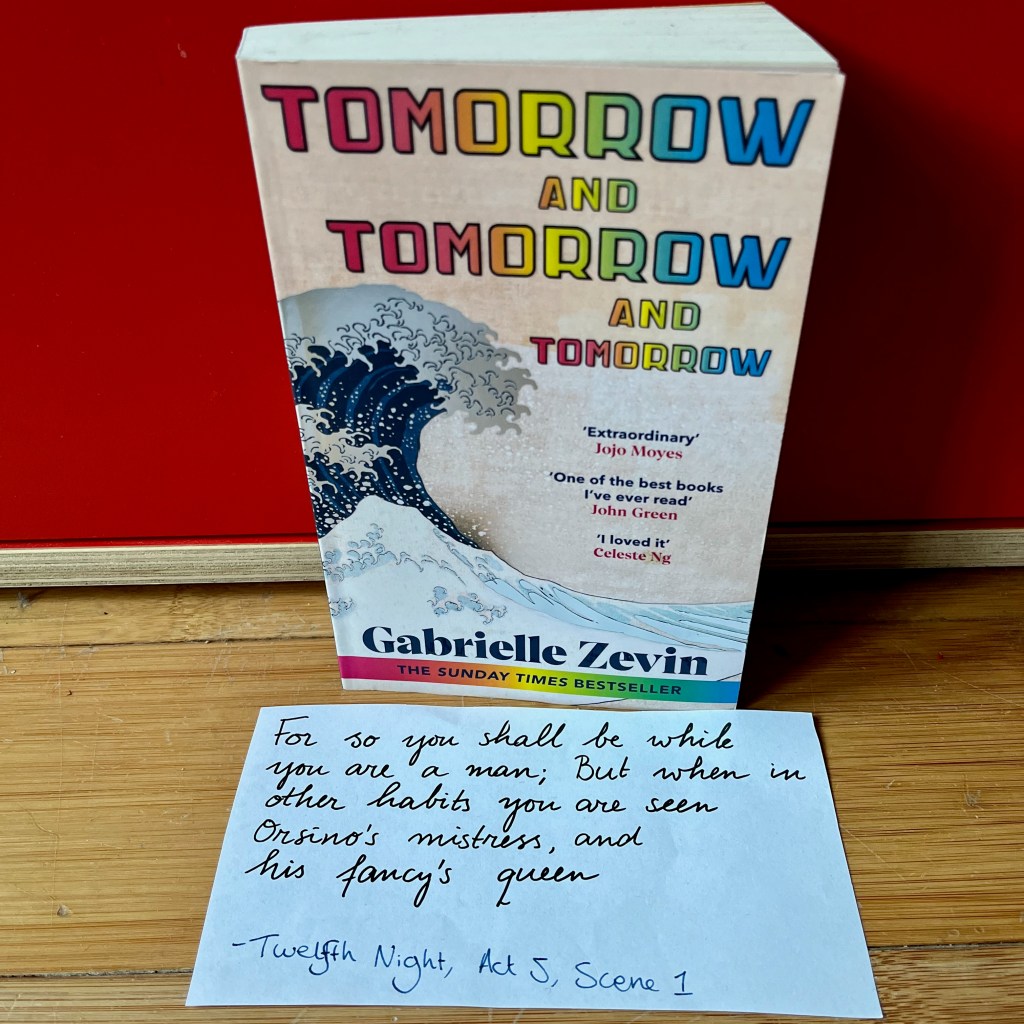 TOMORROW
AND
TOMORROW
AND
TOMORROW
‘Extraordinary’
Jojo Moyes
‘One of the best books
I’ve ever read’
John Green
‘I loved it’
Celeste Ng
Gabrielle Zevin
THE SUNDAY TIMES BESTSELLER
For so you shall be while
you are a man; But when in
other habits you are seen
Orsino's mistress, and
his fancy's queen
-Twelfth Night, Act 5, Scene 1